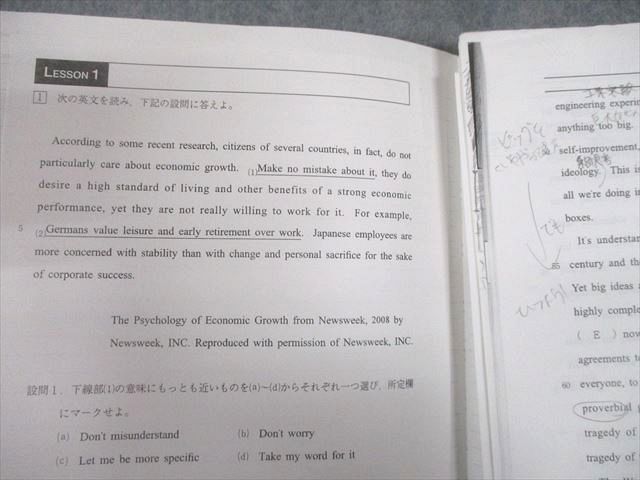 LESSON 1
1 次の英文を読み，下記の設問に答えよ。
According to some recent research, citizens of several countries, in fact, do not
particularly care about economic growth. (1)Make no mistake about it, they do
desire a high standard of living and other benefits of a strong economic
performance, yet they are not really willing to work for it. For example,
5 (2)Germans value leisure and early retirement over work. Japanese employees are
more concerned with stability than with change and personal sacrifice for the sake
of corporate success.
The Psychology of Economic Growth from Newsweek, 2008 by
Newsweek, INC. Reproduced with permission of Newsweek, INC.
設問1．下線部(1)の意味にもっとも近いものを(a)~(d)からそれぞれ一つ選び，所定欄
にマークせよ。
(a) Don't misunderstand
(b) Don't worry
(c) Let me be more specific
(d) Take my word for it
engineering experi
anything too big.
self-improvement,
ideology. This is
all we're doing i
boxes.
でも
It's understan
55 century and th
Yet big ideas a
highly comple
( E ) now
agreements t
60 everyone, to
proverbial
tragedy of
tragedy of